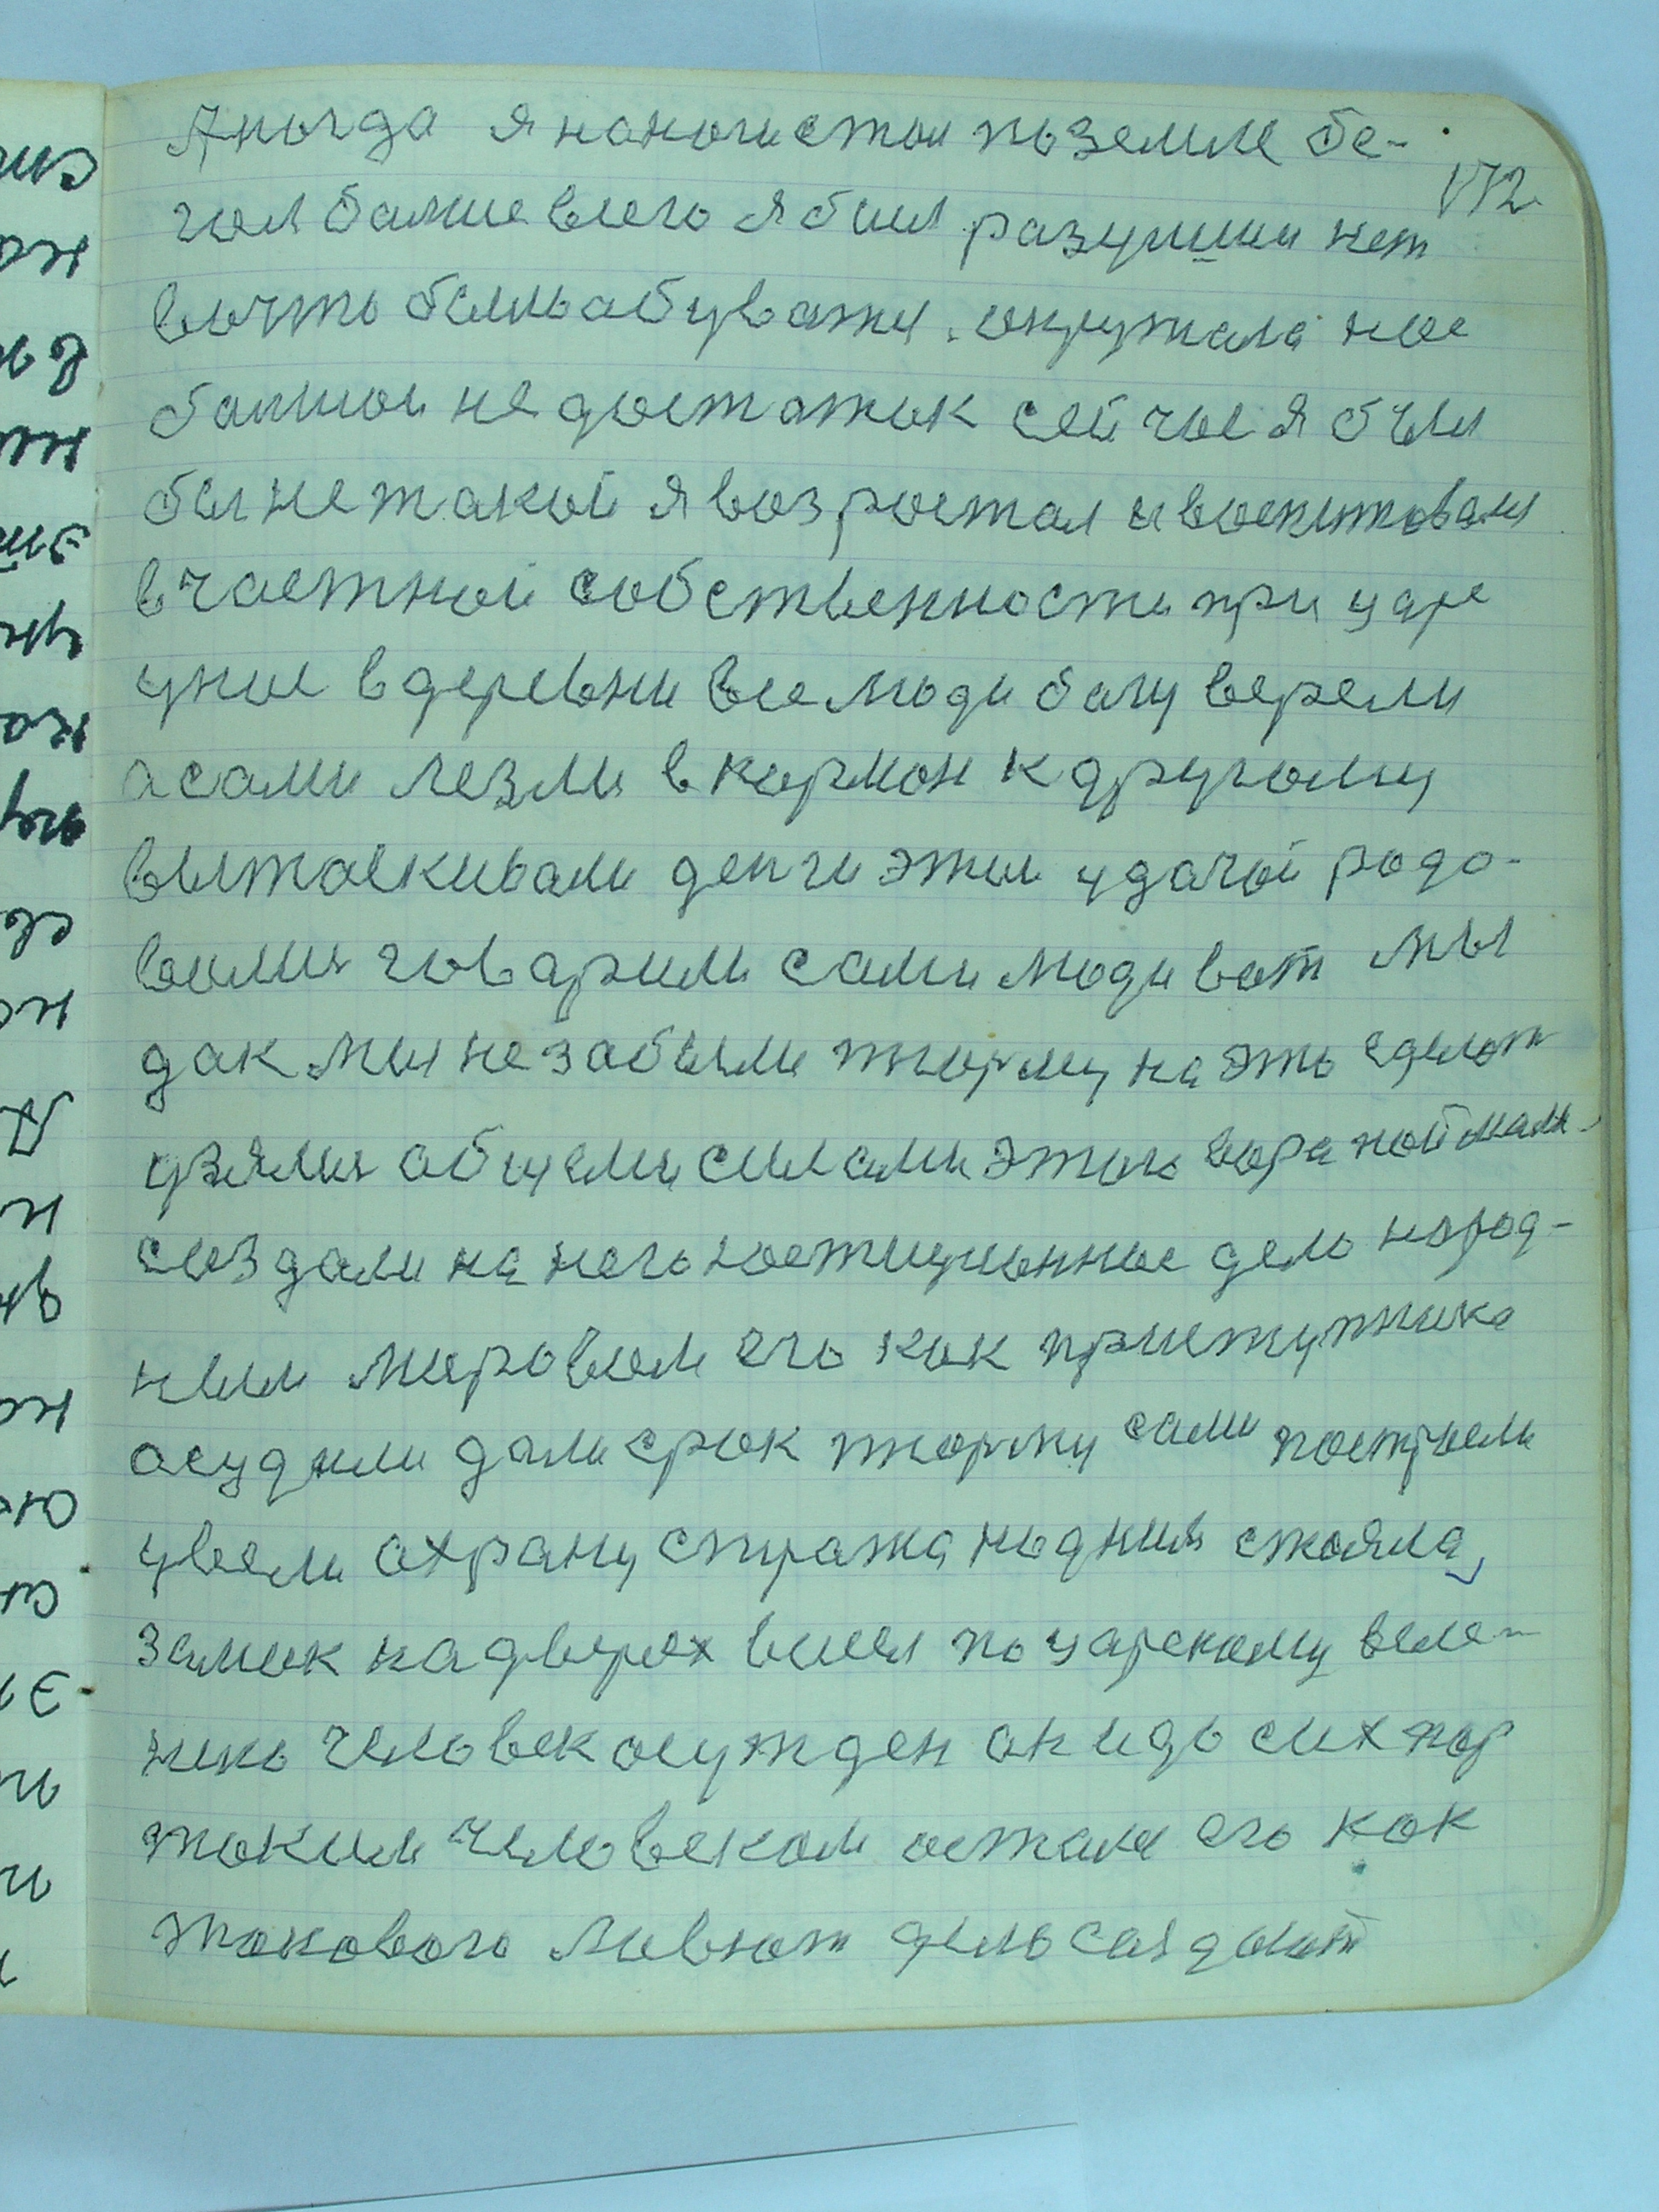 Аногда я наногистои по земле бе-
172
гол болше всего я был разутыи нет
вочто было абуватца. окружала нас
болшои не достаток сей час я был
бы не такой я возростал и воспитоваля
в частной собственности при царе
унас в деревни все люди богу верели
асами лезли в корман к другому
вытоскивали денги этои удачой родо-
волися говарили сами люди вот мы
дак мы не забыли тюрму на это сделот
узялися общеми силами этого вора поймали
создали на него юстицыонное дело народ-
ным меровом его как приступника
осудили дали срок тюрму сами построели
увели охрану стража над ним стояла,
замок на дверех висел по царскому веле-
нию человек осужден он идо сих пор
таким человеком остался его как
такового ловют дело создают